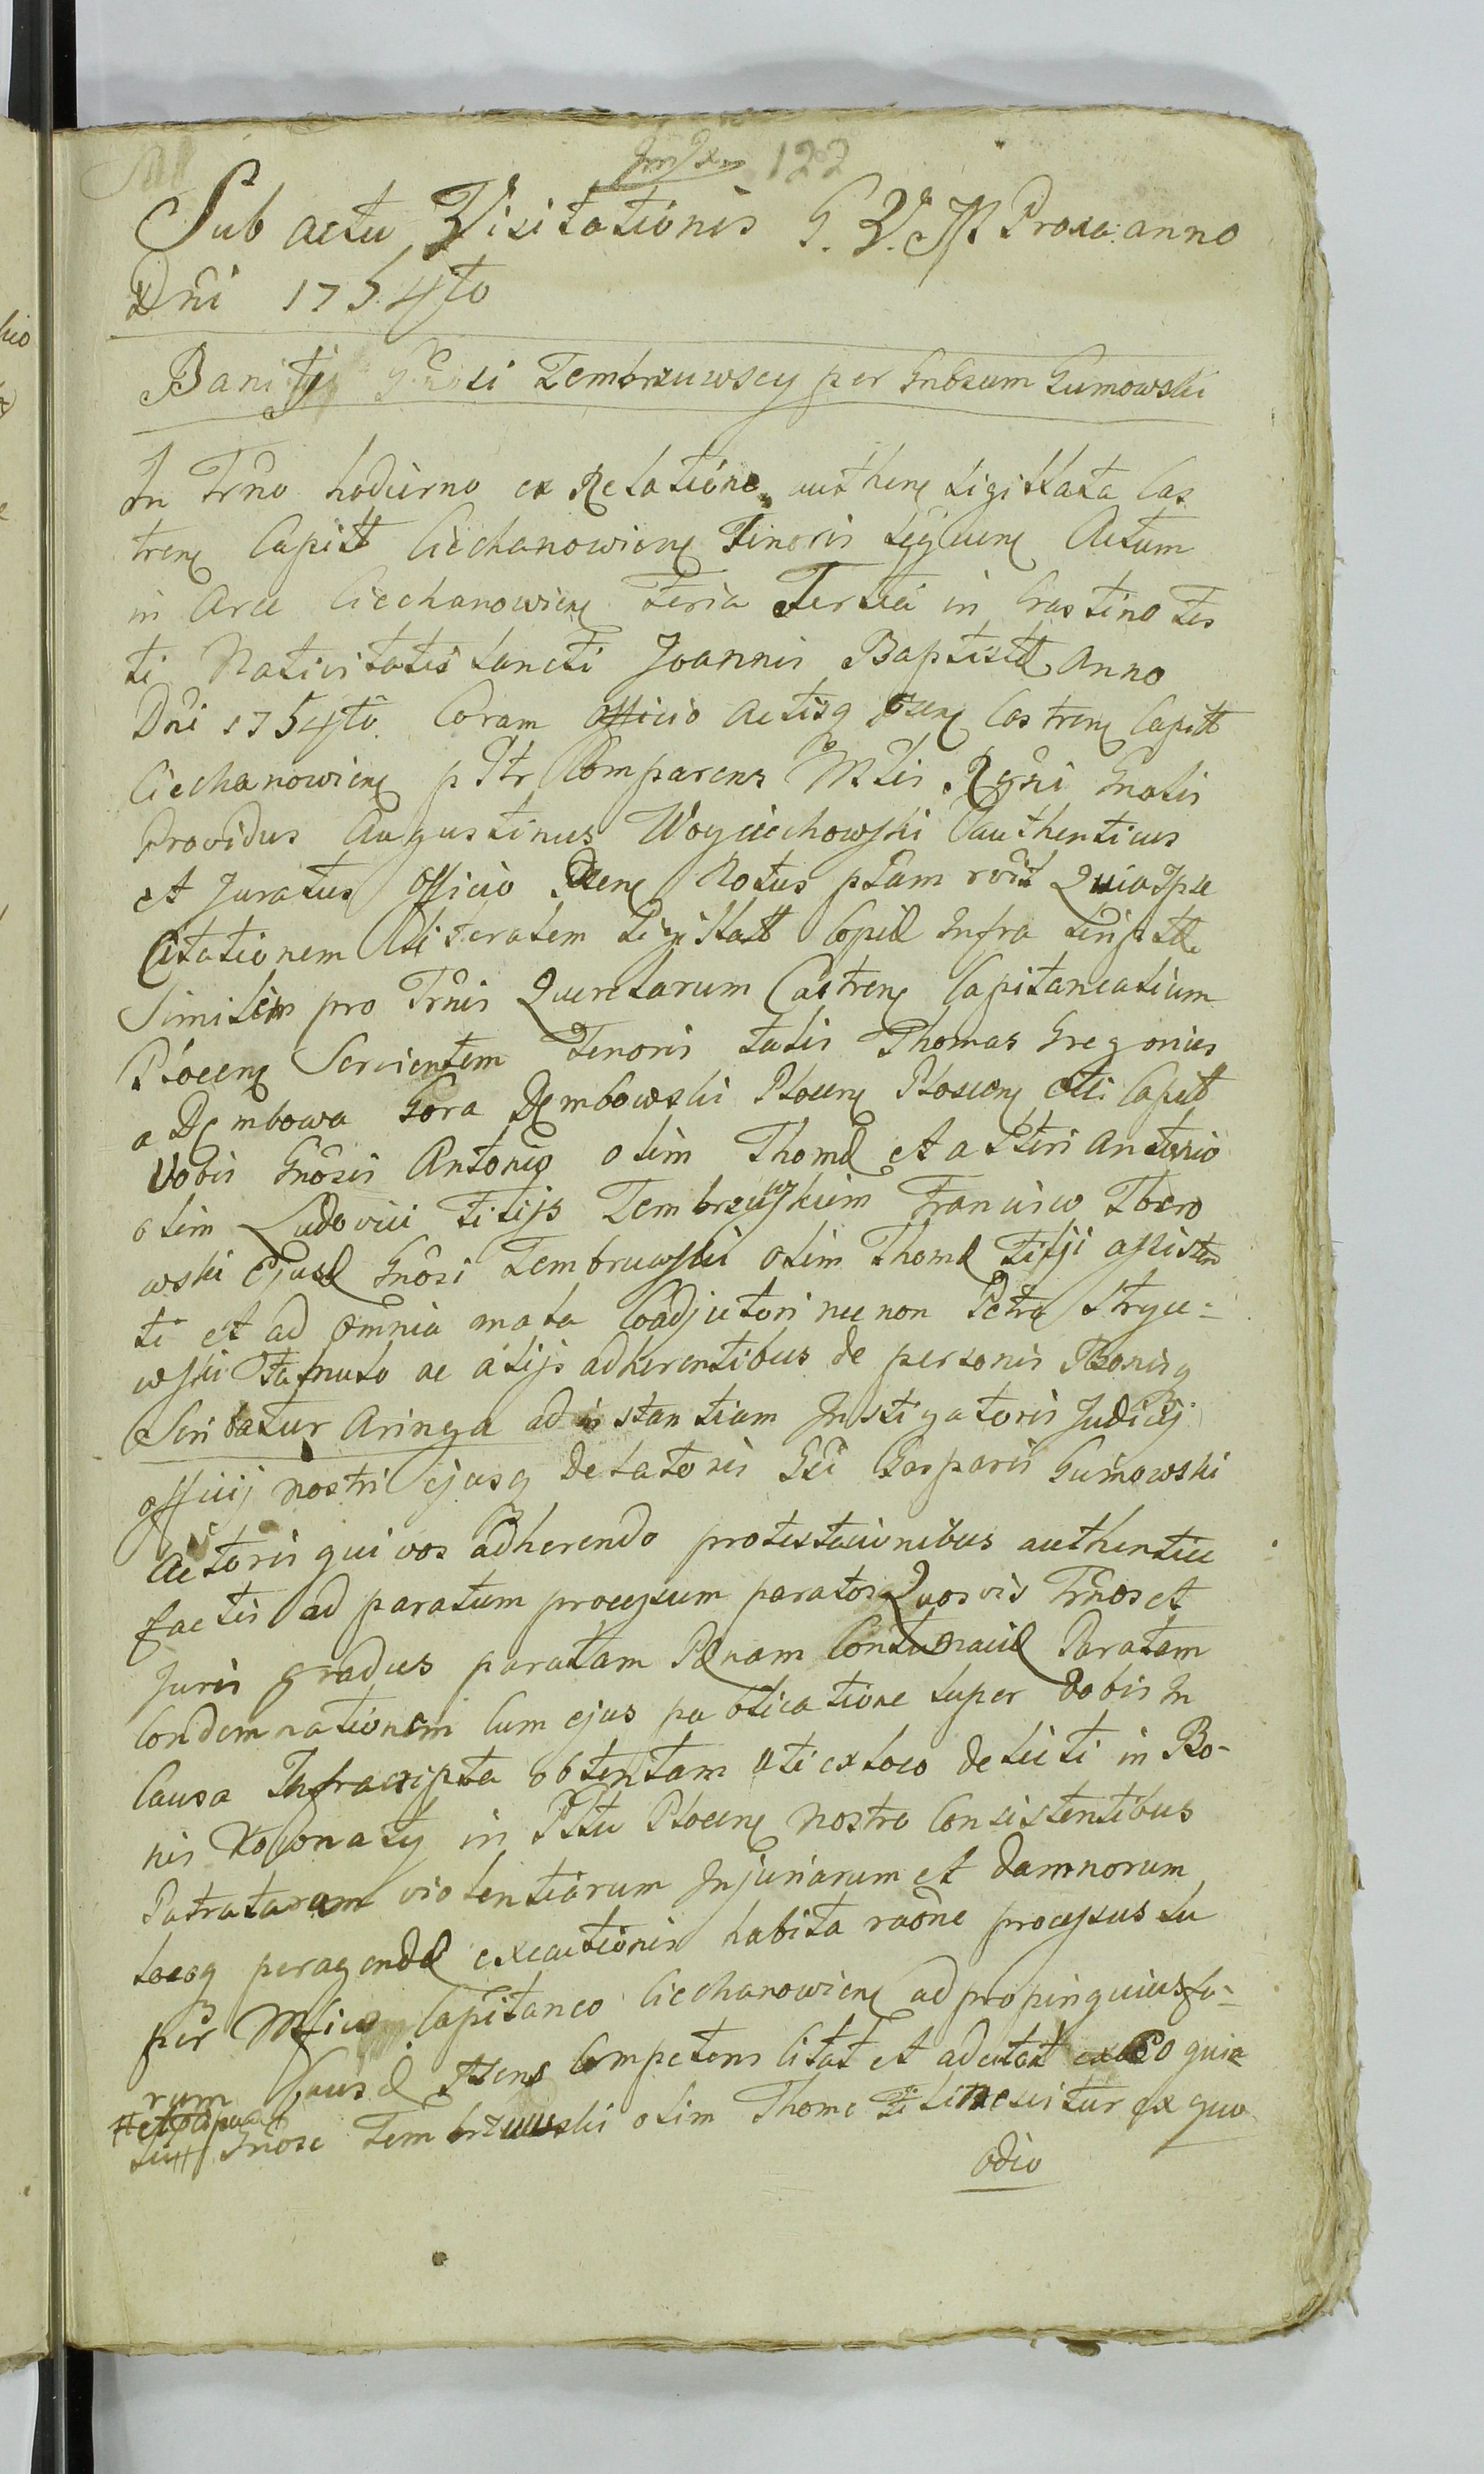 122
Sub actu Visitationis G. V. M Proxa: anno
Dni 1754to
Baniti Gnosi Tembrzuwscy per Gnbsum Gumowski
In Trno hodierno ex Relatione authen sigillata Cas
tren Capitt Ciechanowien Tenoris seguen Actum
in Arce Ciechanowien Feria Tertia in Crastino Fes
ti Nativitatis Sancti Joannis Baptistæ Anno
Dni 1754to. Coram officio Actisq Castren Capitt
Ciechanowien pltr Comparens Mtis Regni Gnalis
Providus Augustinus Woyciechowski Authenticus
et Juratus officio Notus plam Quia Ipse
Citationem Literalem Sigillatt Copiæ Infra
Similem pro Trnis Querelarum Castren Capitanealium
Plocen Servientem Tenoris talis Thomas Gregorius
a Dembowa Gora Dembowski Plocen Plosien Capitt
Vobis Gnosis Antonio olim Thomæ et alteri Antonio
olim Ludovici Filijs Tembrzuskim Francisco
wski Ejusd Gnosi Tembruwski olim Thomæ Filji assisten
ti et ad omnia mala Coadjutori nec non Petro Stryie=
wski Famulo ac alijs adherentibus de personis Bonisq
Scribatur Aringa ad instantiam Instigatoris Judicij
officij nostri ejusq Delatoris Gsi Gasparis Gumowski
Actoris qui vos adherendo protestationibus authentice
factis ad paratum processum paratos Quosvis Trnos et
Juris gradus paratam Pænam Contumaciæ Paratam
Condemnationem Cum ejus publicatione super Vobis In
Causa Infrascripta obtentam uti ex loco delicti in Bo-
nis in Pltu Plocen nostro Consistentibus
Patratarum violentiarum Injuriarum et damnorum
locoq peragendæ executionis habita raone processus su
per Mfico Capitaneo Ciechanowien ad propinquius fo=
rum Causæ Competens Citat et adcitat ex eo quia
Gnose Tembrzuuski olim Thome ex quo
odio